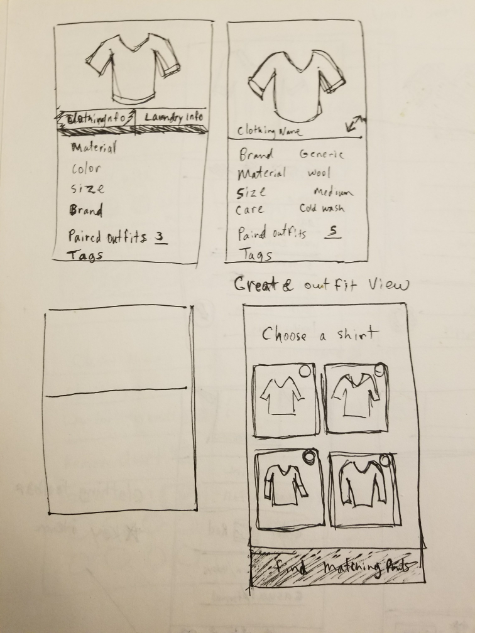 Clothing Info Laundry Info
Material
Color
Size
Brand
Paired outfits 3
Tags
Clothing Name
Brand Generic
Material wool
Size Medium
Care Cold wash
Paired outfits 5
Tags
Create outfit View
Choose a shirt
Find Matching Pants